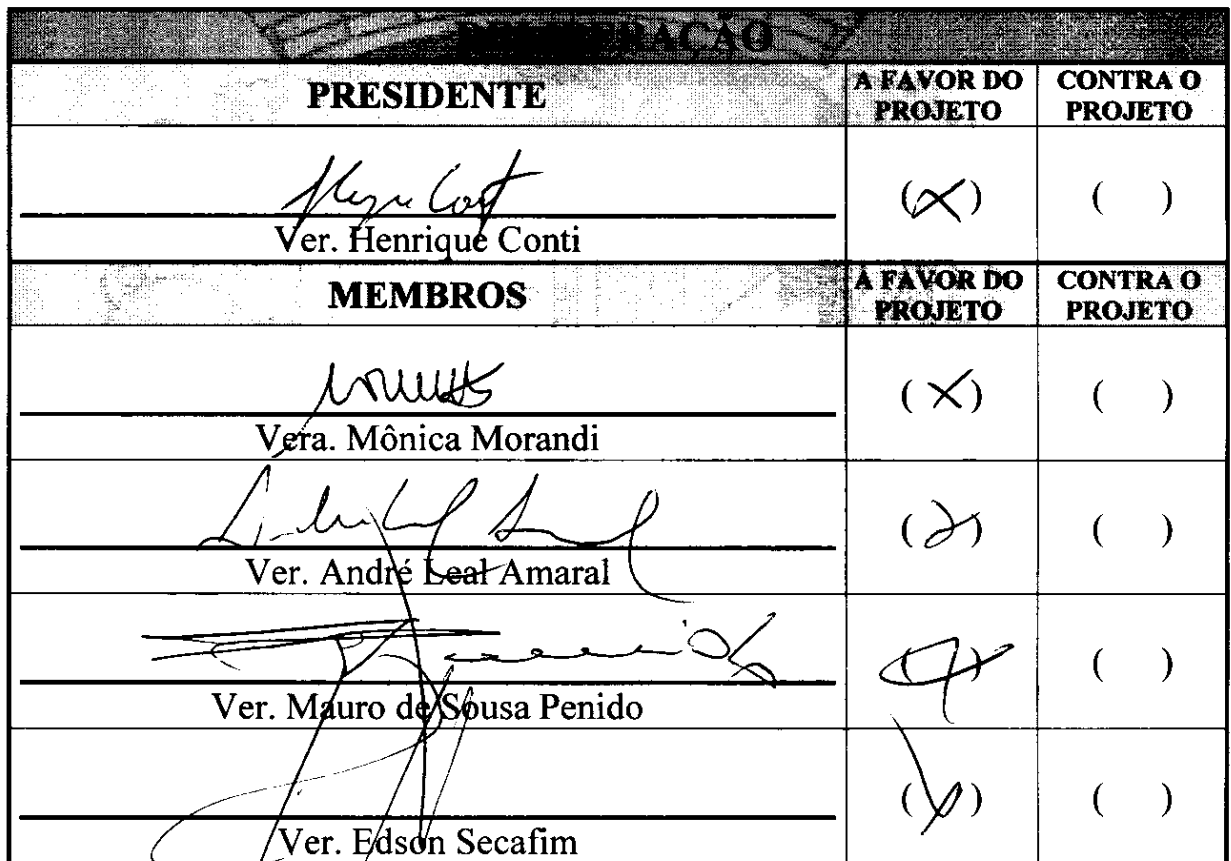 DELIBERAÇÃO
PRESIDENTE
A FAVOR DO PROJETO
CONTRA O PROJETO
Ver. Henrique Conti
(X)
( )
MEMBROS
A FAVOR DO PROJETO
CONTRA O PROJETO
Vera. Mônica Morandi
(X)
( )
Ver. André Leal Amaral
( )
Ver. Mauro de Sousa Penido
( )
Ver. Edson Secafim
( )